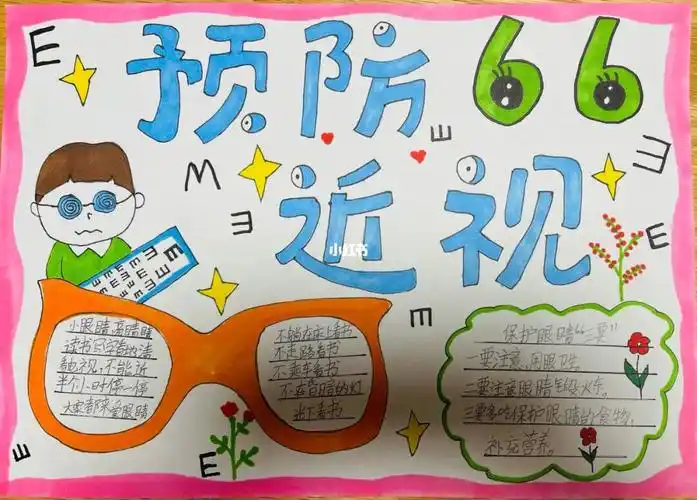 E
预防 66
E
M
E
近视
小红书
E
E
E
小眼睛
读书识字
不能近
半个小时停一停
大家都来爱眼睛
不躺在床上看书
不走路看书
不乘车看书
不在昏暗的灯
光下看书
E
保护眼睛“三要”
一要注意用眼卫生。
二要注意眼睛
三要多吃保护眼睛的食物,
补充营养。
E
E